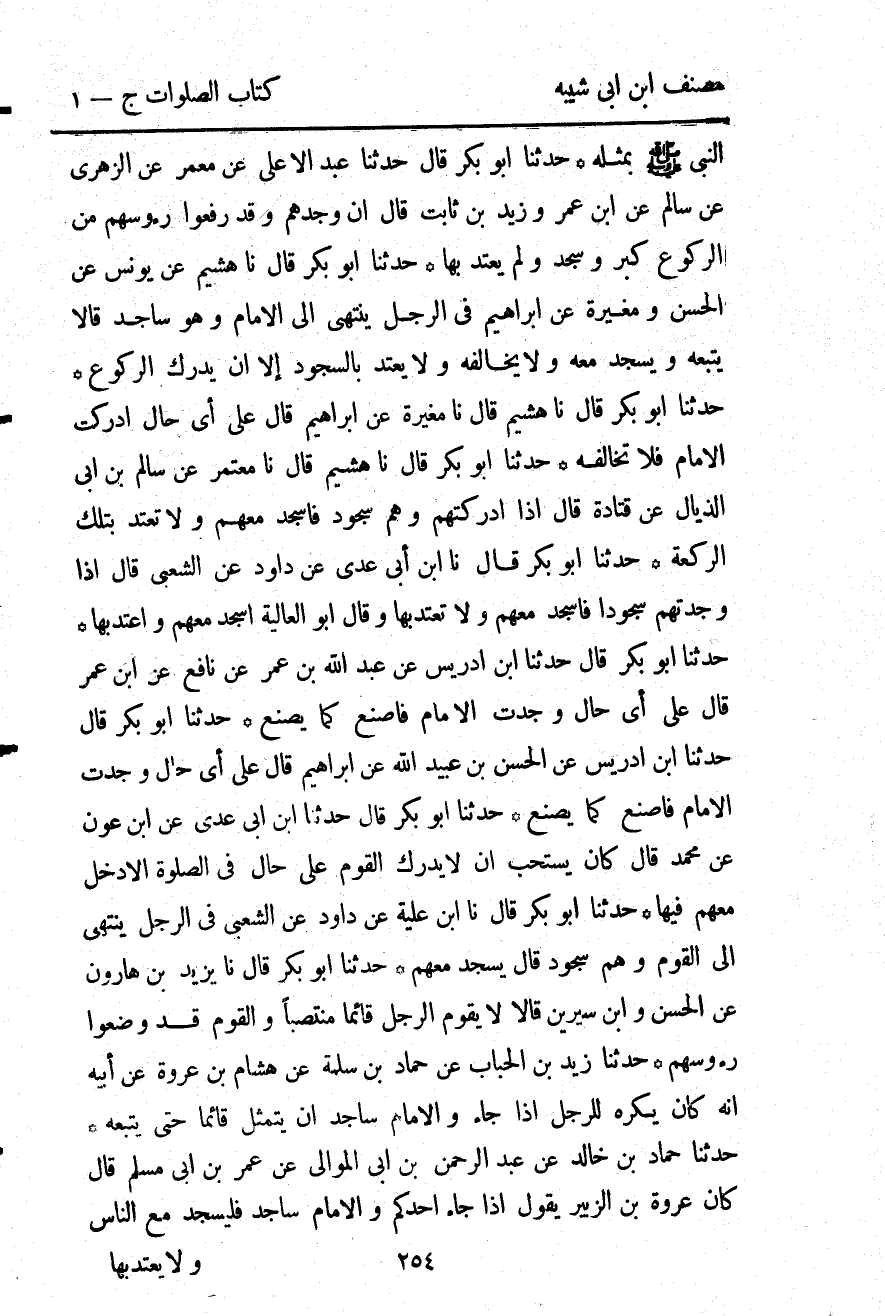 مصنف ابن ابى شيبه كتاب الصلوات ج — ١
النبى ﷺ بمثله * حدثنا ابو بكر قال حدثنا عبد الاعلى عن معمر عن الزهرى
عن سالم عن ابن عمر و زيد بن ثابت قال ان وجدهم و قد رفعوا رءوسهم من
الركوع كبر و سجد و لم يعتد بها * حدثنا ابو بكر قال نا هشيم عن يونس عن
الحسن و مغيرة عن ابراهيم فى الرجل ينتهى الى الامام و هو ساجد قالا
يتبعه و يسجد معه و لا يخالفه و لا يعتد بالسجود إلا ان يدرك الركوع *
حدثنا ابو بكر قال نا هشيم قال نا مغيرة عن ابراهيم قال على أى حال ادركت
الامام فلا تخالفه * حدثنا ابو بكر قال نا هشيم قال نا معتمر عن سالم بن ابى
الذيال عن قتادة قال اذا ادركتهم و هم سجود فاسجد معهم و لا تعتد بتلك
الركعة * حدثنا ابو بكر قال نا ابن أبى عدى عن داود عن الشعبى قال اذا
وجدتهم سجودا فاسجد معهم و لا تعتدبها و قال ابو العالية اسجد معهم و اعتدبها *
حدثنا ابو بكر قال حدثنا ابن ادريس عن عبد الله بن عمر عن نافع عن ابن عمر
قال على أى حال وجدت الامام فاصنع كما يصنع * حدثنا ابو بكر قال
حدثنا ابن ادريس عن الحسن بن عبيد الله عن ابراهيم قال على أى حال وجدت
الامام فاصنع كما يصنع * حدثنا ابو بكر قال حدثنا ابن ابى عدى عن ابن عون
عن محمد قال كان يستحب ان لا يدرك القوم على حال فى الصلوة الا دخل
معهم فيها * حدثنا ابو بكر قال نا ابن علية عن داود عن الشعبى فى الرجل ينتهى
الى القوم و هم سجود قال يسجد معهم * حدثنا ابو بكر قال نا يزيد بن هارون
عن الحسن و ابن سيرين قالا لا يقوم الرجل قائما منتصباً و القوم قد وضعوا
رءوسهم * حدثنا زيد بن الحباب عن حماد بن سلمة عن هشام بن عروة عن أبيه
انه كان يكره للرجل اذا جاء و الامام ساجد ان يتمثل قائما حتى يتبعه *
حدثنا حماد بن خالد عن عبد الرحمن بن ابى الموالى عن عمر بن ابى مسلم قال
كان عروة بن الزبير يقول اذا جاء احدكم و الامام ساجد فليسجد مع الناس
و لا يعتدبها
٢٥٤